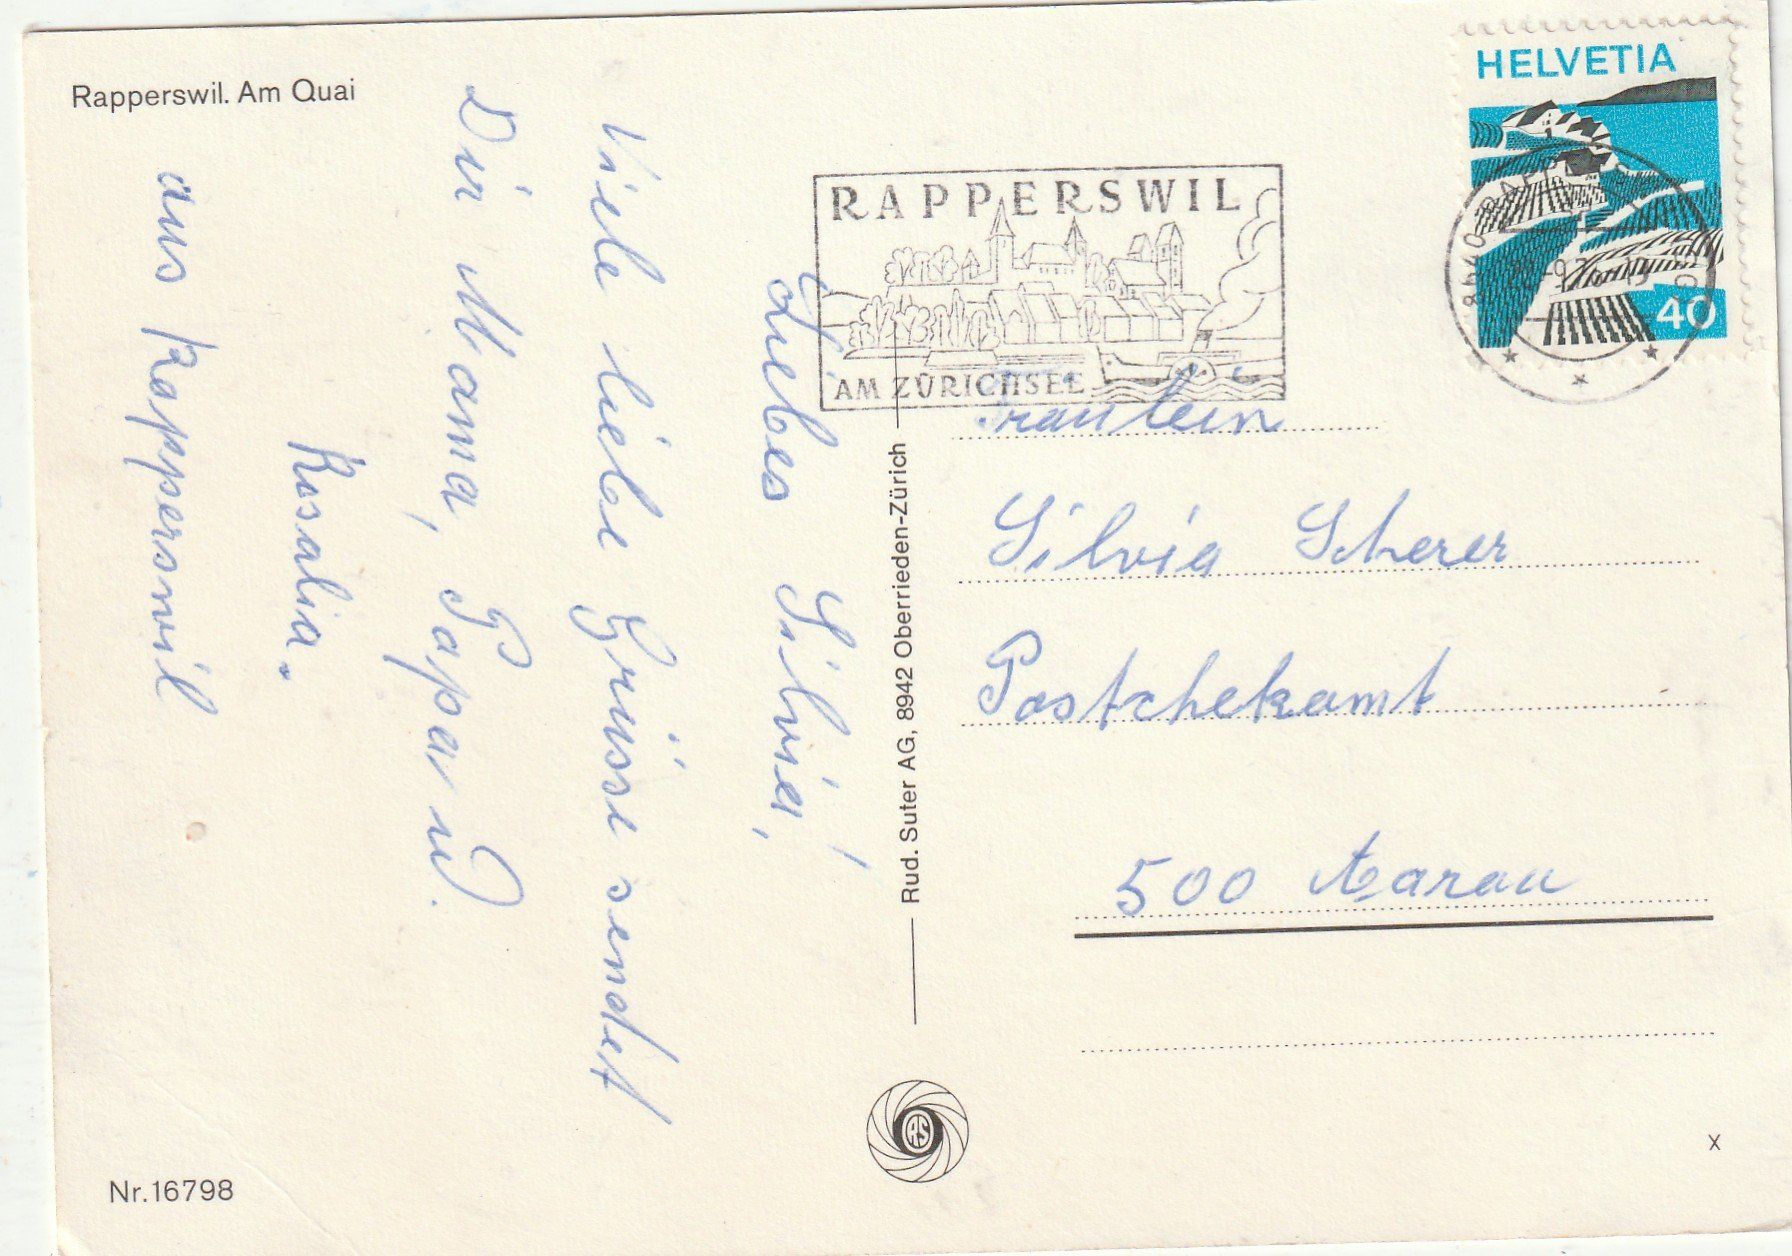 Rapperswil. Am Quai
Liebes Silvia,
Viele liebe Grüsse sendet
Dir Mama, Papa u.
Rosalia.
aus Rapperswil
Nr.16798
Rud. Suter AG, 8942 Oberrieden-Zürich
RS
RAPPERSWIL
AM ZÜRICHSEE
HELVETIA
40
8640
Fräulein
Silvia Scherer
Postchekamt
500 Aarau
X